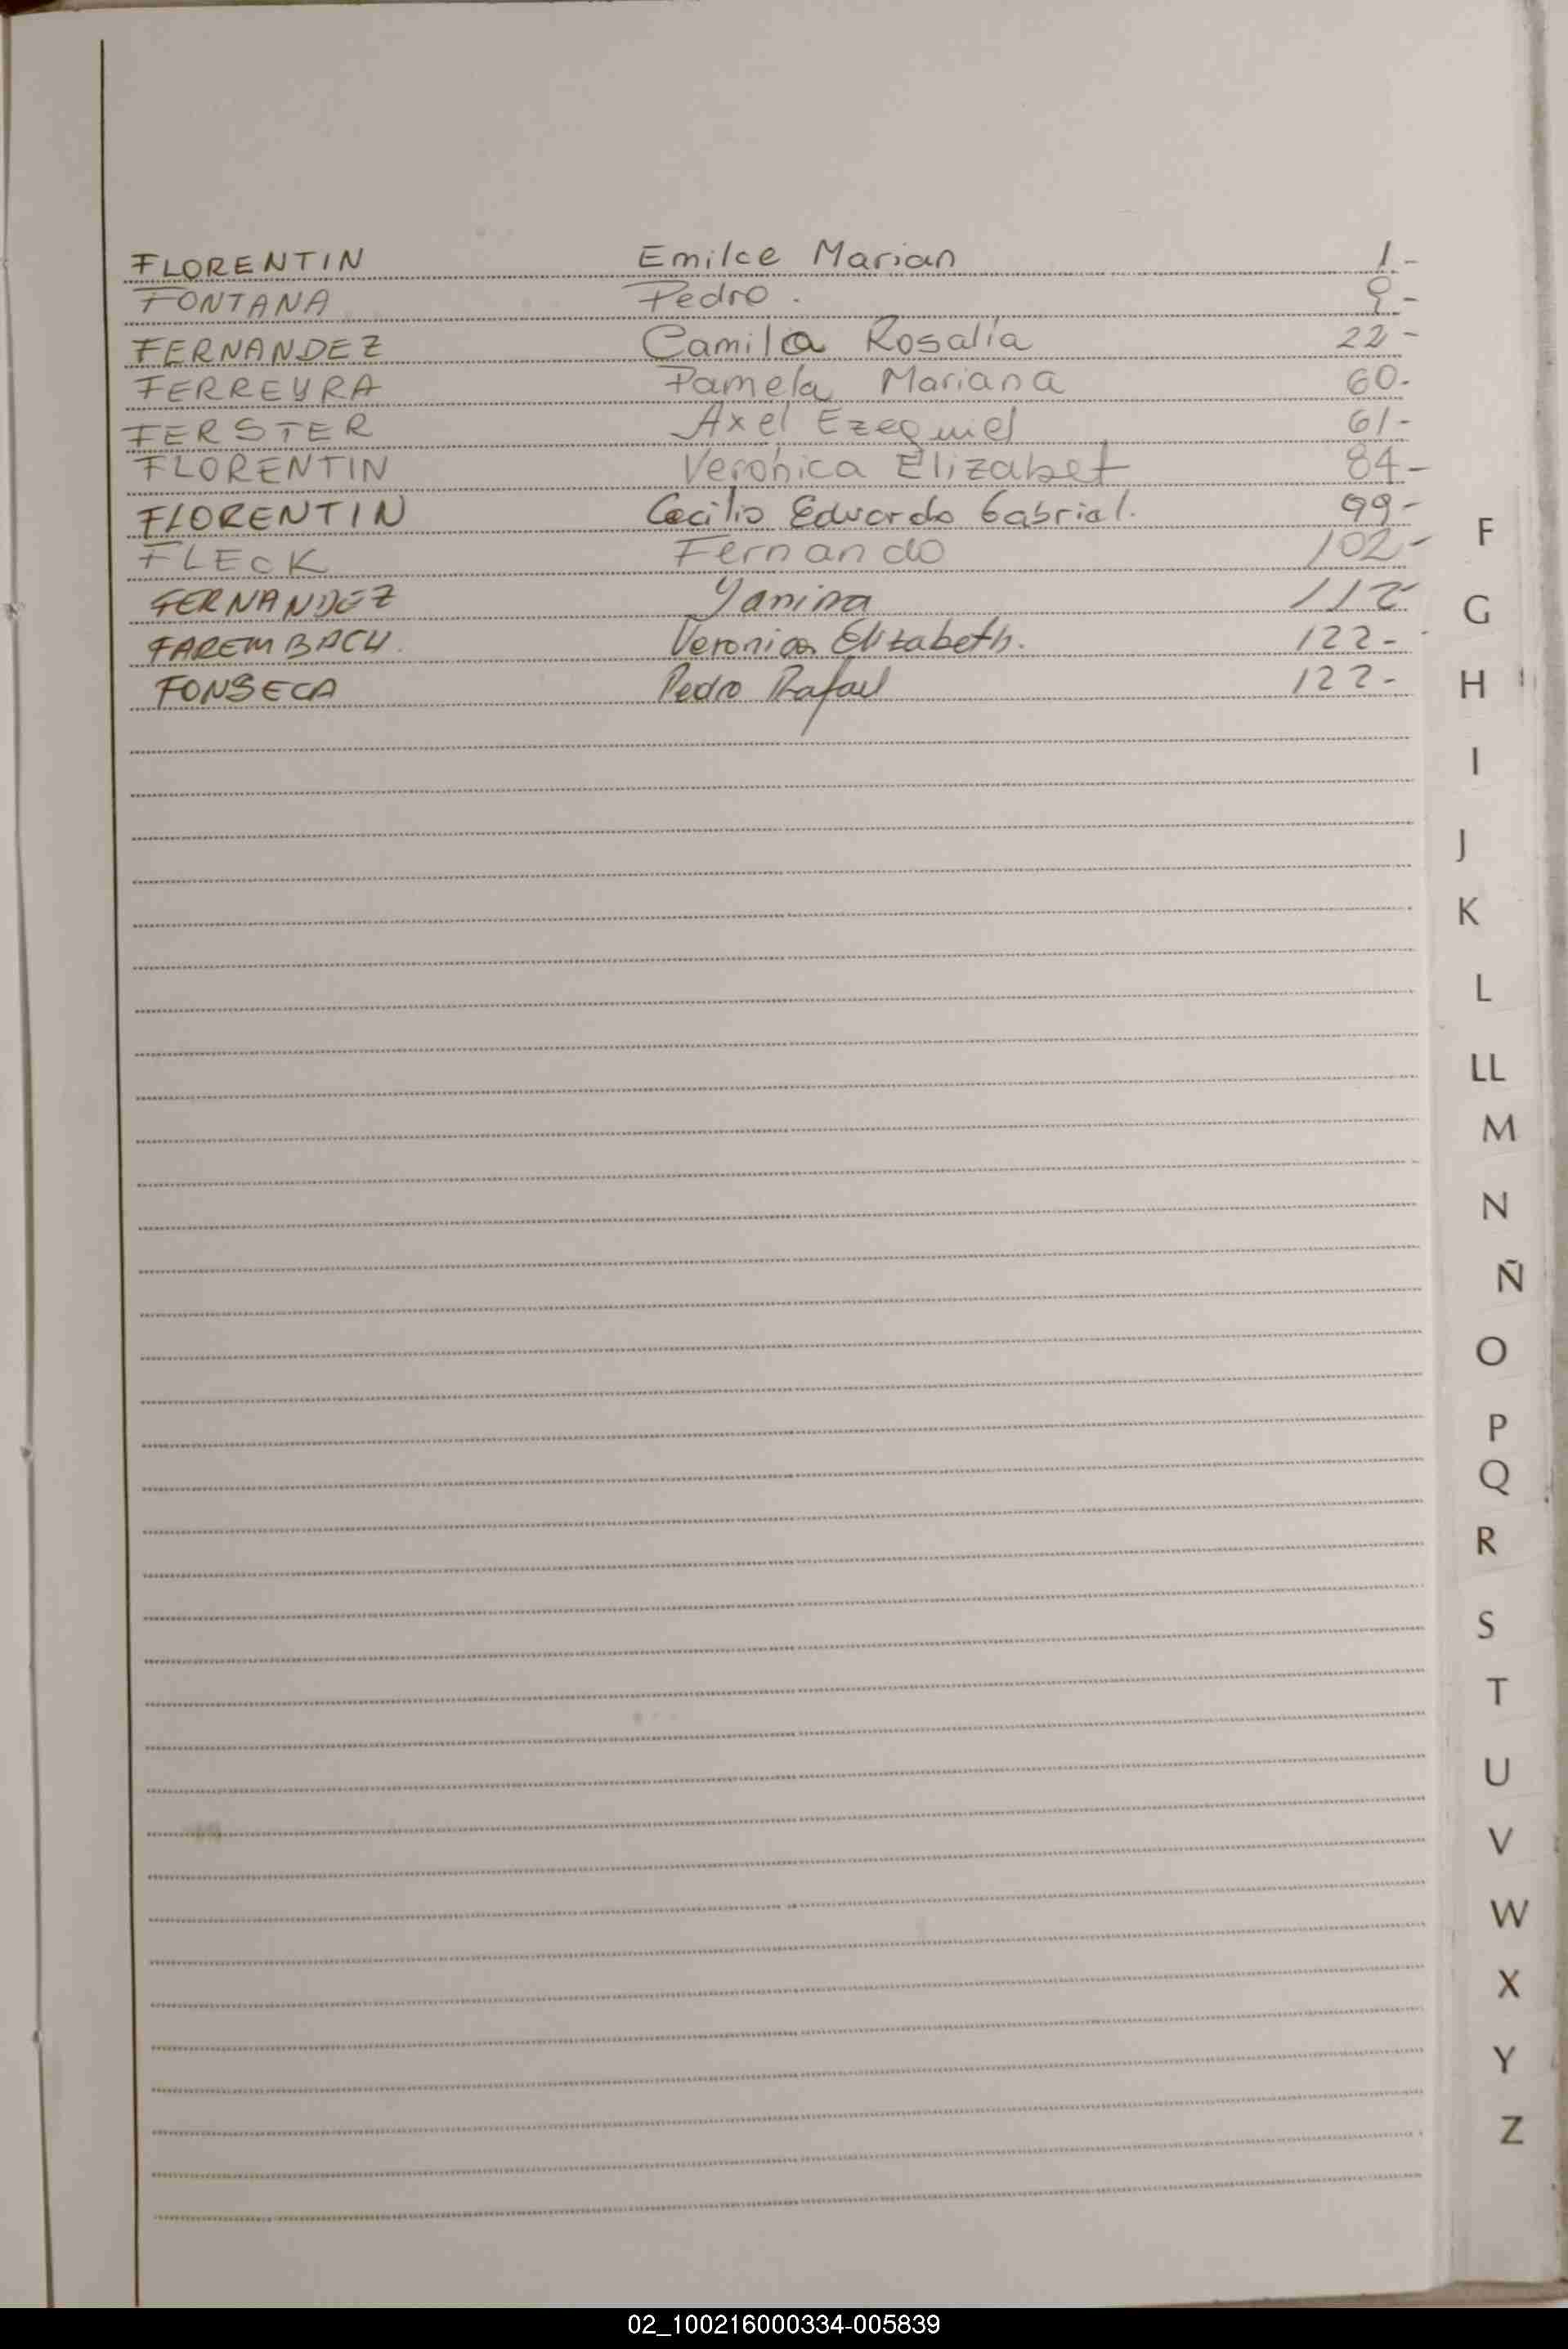 FLORENTIN Emilce Marian 1-
FONTANA Pedro. 9-
FERNANDEZ Camila Rosalía 22-
FERREYRA Pamela Mariana 60-
FERSTER Axel Ezequiel 61-
FLORENTIN Veronica Elizabet 84-
FLORENTIN Cecilio Eduardo Gabriel. 99-
FLECK Fernando 102-
FERNANDEZ Yanina 112-
FAREMBACH. Veronica Elizabeth. 122-
FONSECA Pedro Rafael 122-
F
G
H
I
J
K
L
LL
M
N
Ñ
O
P
Q
R
S
T
U
V
W
X
Y
Z
02_100216000334-005839